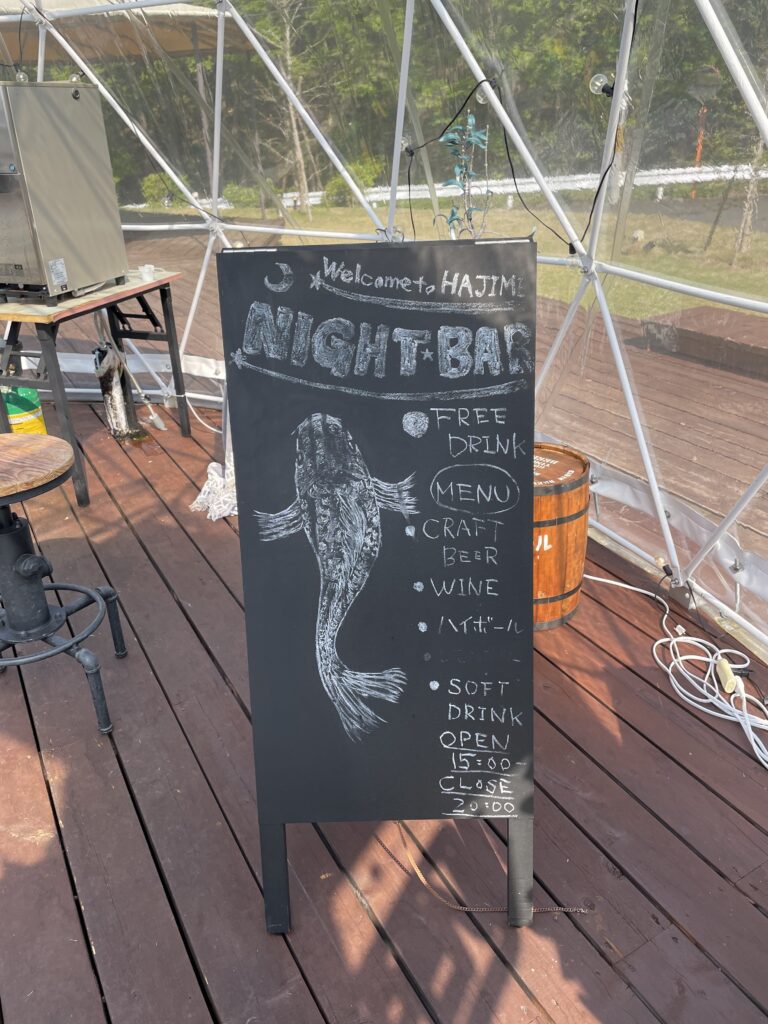 Welcome to HAJIME
NIGHT★BAR
FREE
DRINK
MENU
CRAFT
BEER
WINE
ハイボール
SOFT
DRINK
OPEN
15:00~
CLOSE
20:00